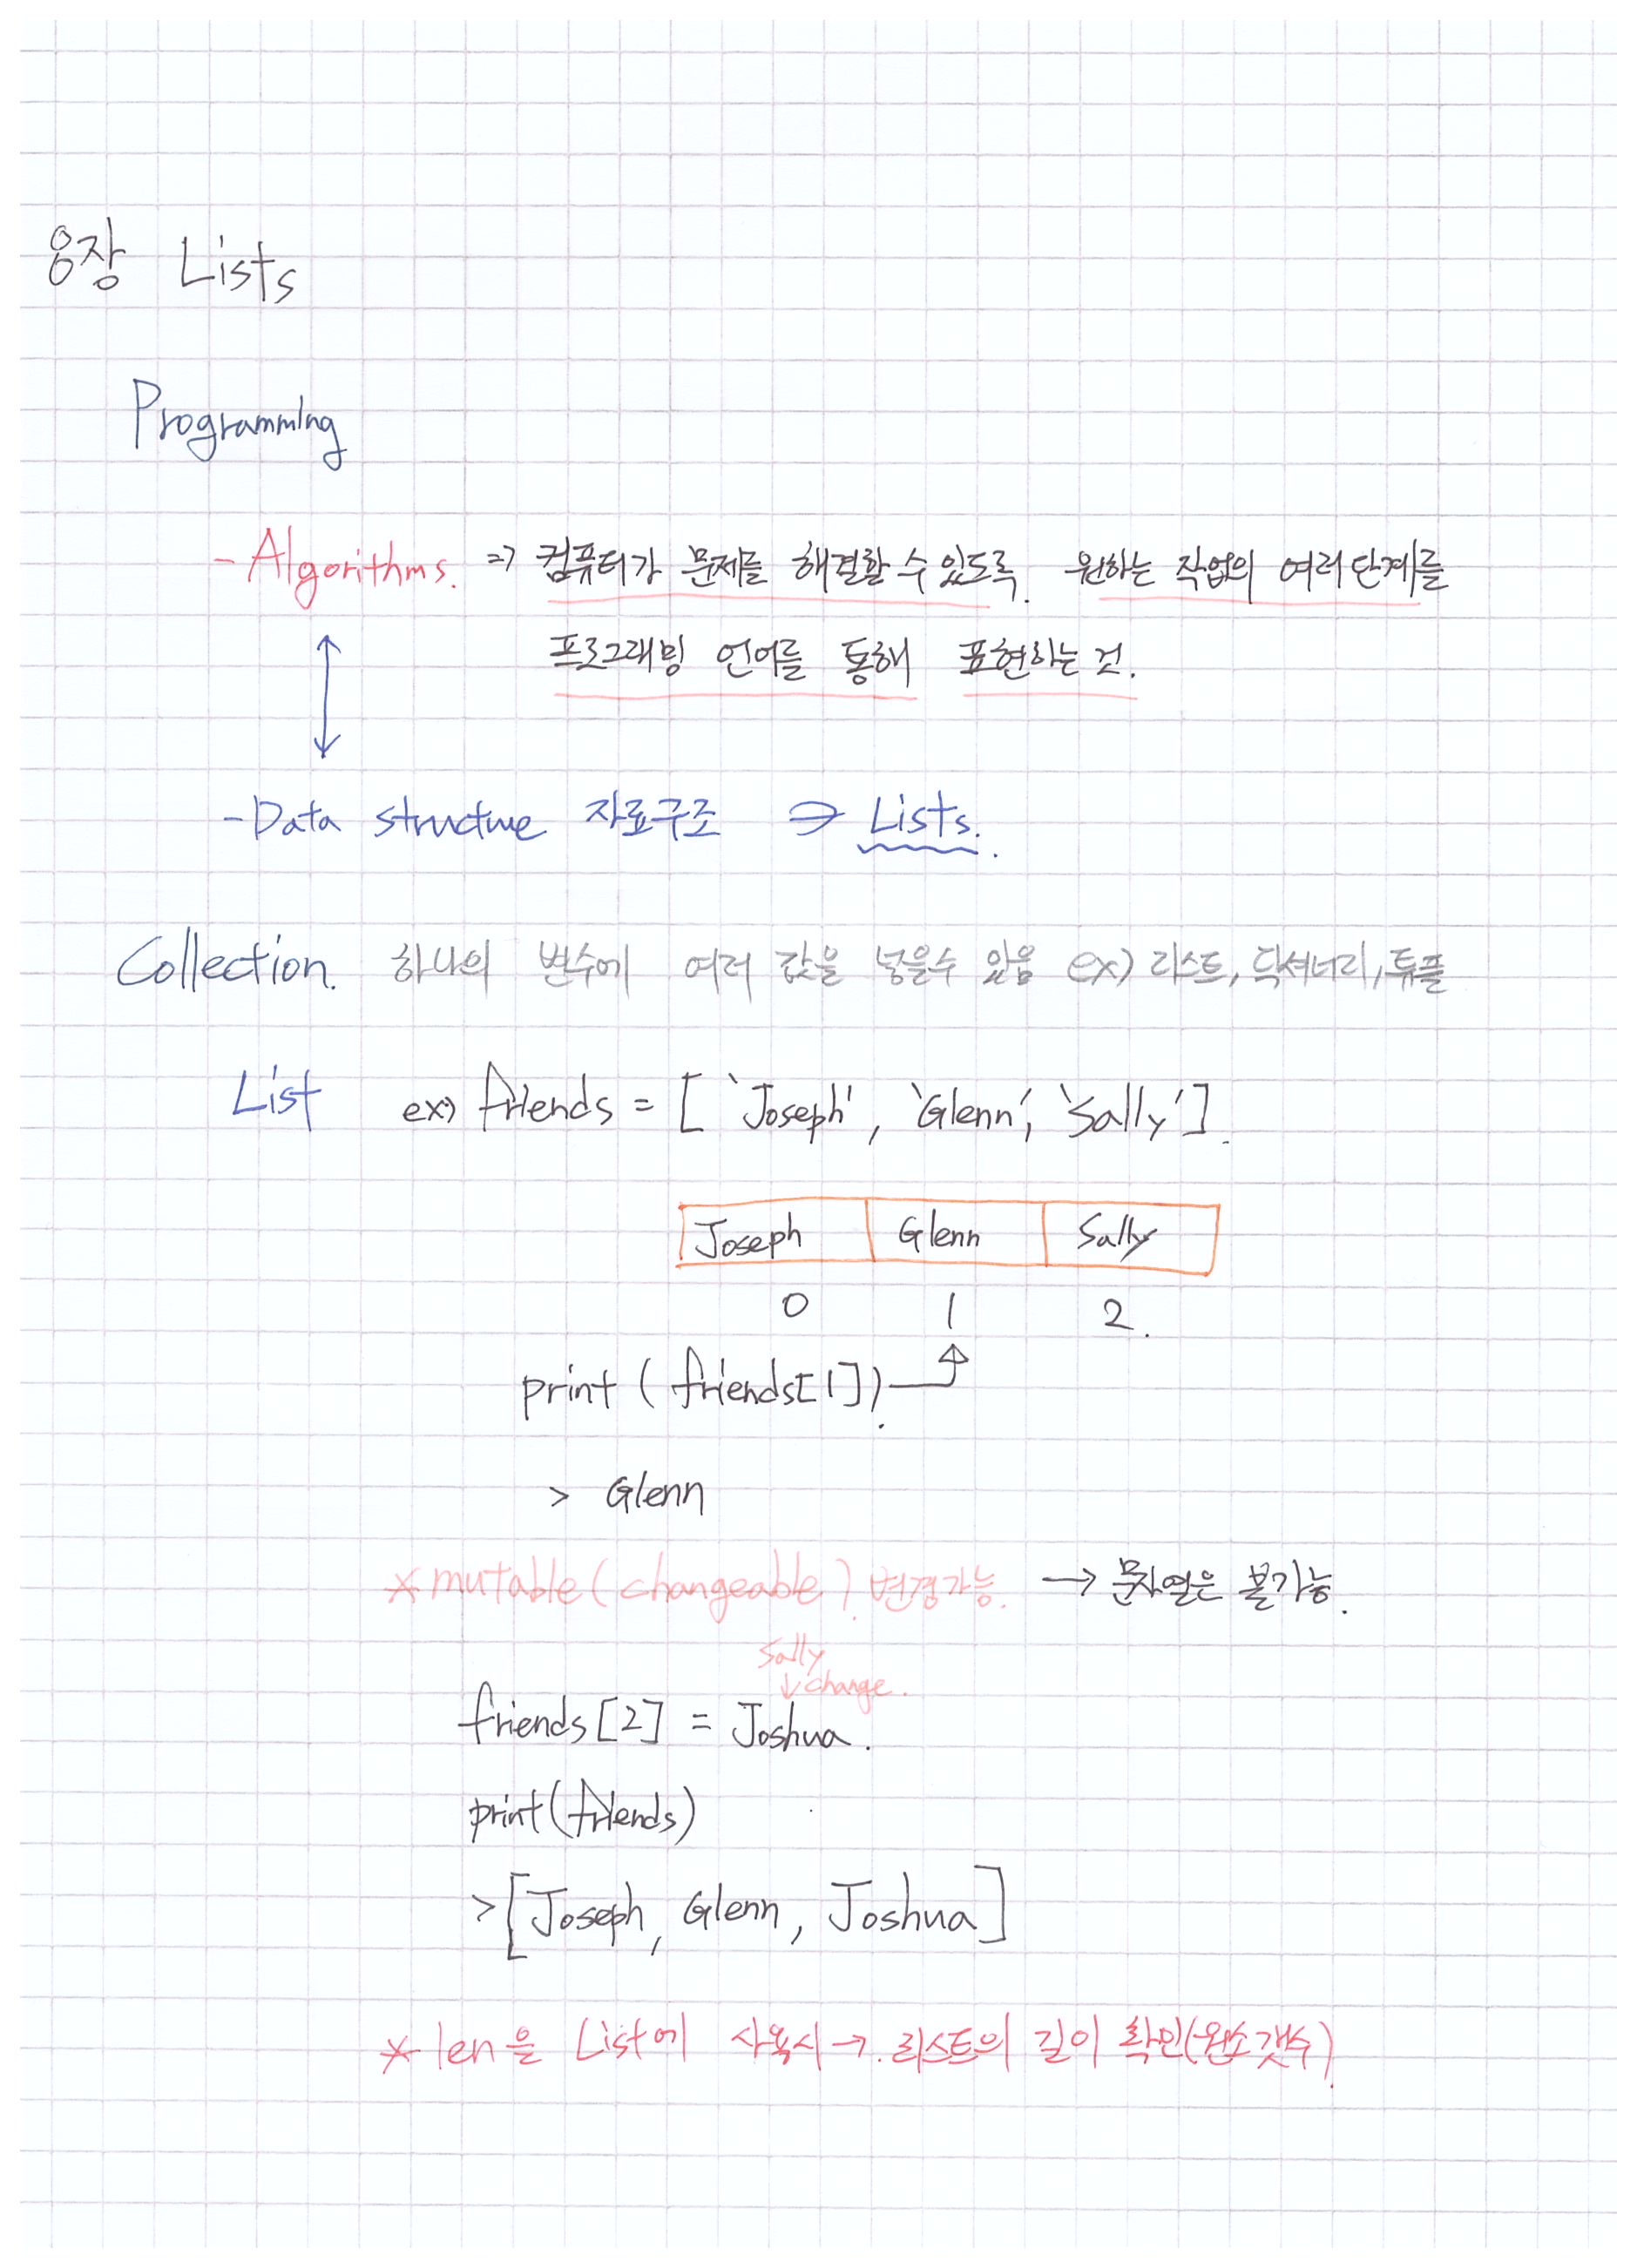 8장 Lists
Programming
- Algorithms. => 컴퓨터가 문제를 해결할 수 있도록. 원하는 작업의 여러단계를
프로그래밍 언어를 통해 표현하는 것.
- Data structure 자료구조 => Lists.
Collection. 하나의 변수에 여러 값을 넣을수 있음 ex) 리스트, 딕셔너리, 튜플
List ex) friends = [ 'Joseph', 'Glenn', 'Sally'].
Joseph Glenn Sally
0 1 2.
print ( friends[1]).
> Glenn
* mutable (changeable). 변경가능. → 문자열은 불가능.
Sally
↓ change.
friends [2] = Joshua.
print(friends)
> [Joseph, Glenn, Joshua]
* len을 List에 사용시 →. 리스트의 길이 확인(원소갯수).